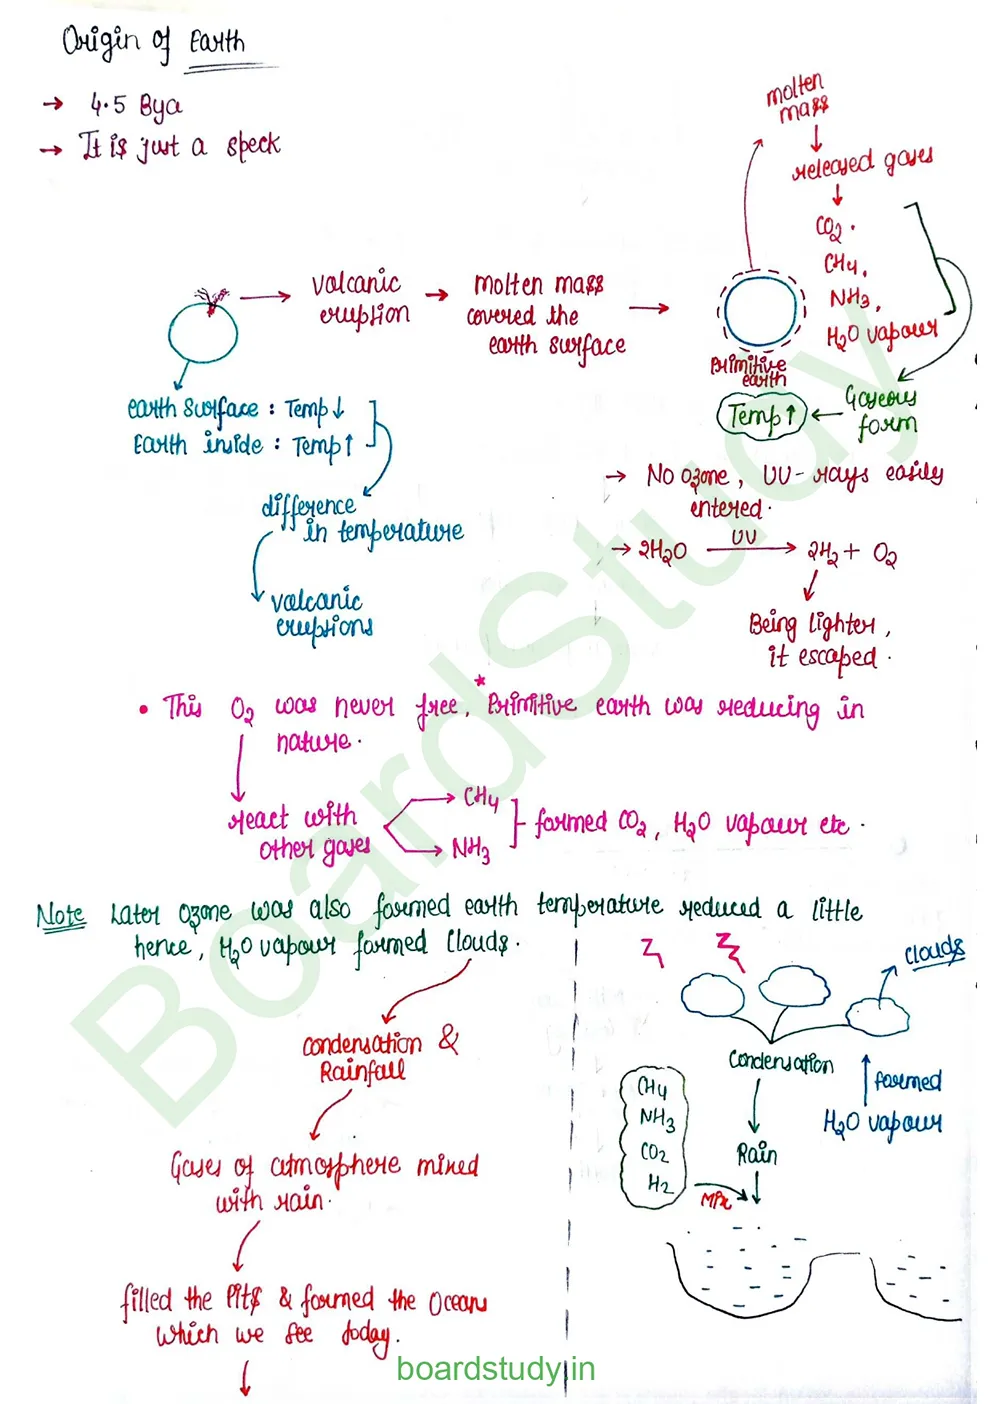 Origin of Earth
→ 4.5 Bya
→ It is just a speck
molten
mass
released gases
CO2.
CH4,
NH3,
H2O vapour
volcanic
eruption
molten mass
covered the
earth surface
Primitive
earth
Gaseous
form
Temp↑
earth surface : Temp↓
Earth inside : Temp↑
difference
in temperature
volcanic
eruptions
→ No Ozone, UV-rays easily
entered.
→ 2H2O UV→ 2H2 + O2
Being lighter,
it escaped.
• This O2 was never free, *Primitive earth was reducing in
nature.
react with
other gases
CH4
NH3
formed CO2, H2O vapour etc.
Note Later Ozone was also formed earth temperature reduced a little
hence, H2O vapour formed Clouds.
condensation &
Rainfall
Gases of atmosphere mixed
with rain.
filled the Pits & formed the Oceans
which we see today.
Clouds
Condensation
formed
H2O vapour
CH4
NH3
CO2
H2
Rain
Mix
BoardStudy
boardstudy.in